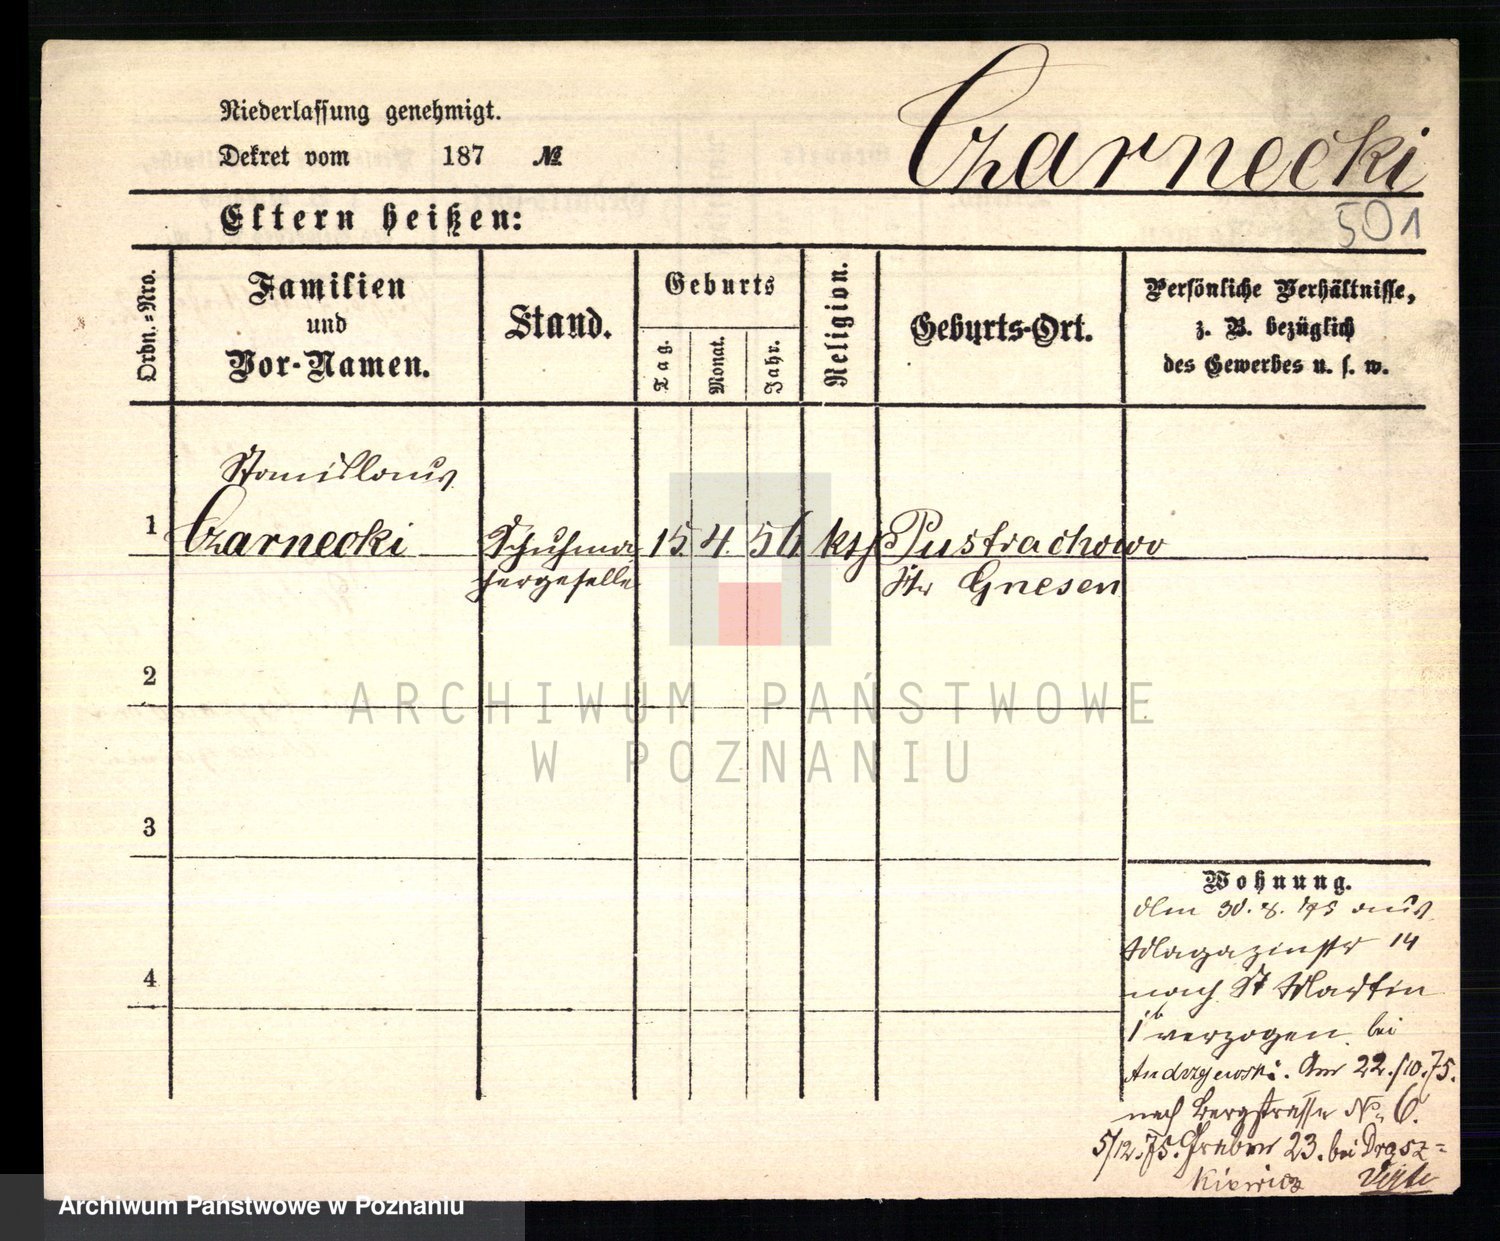 Niederlassung genehmigt.
Dekret vom 187 №
Czarnecki
501
Eltern heißen:
Ordn.-Nro.
Familien
und
Vor-Namen.
Stand.
Geburts
Tag.
Monat.
Jahr.
Religion.
Geburts-Ort.
Persönliche Verhältnisse,
z. B. bezüglich
des Gewerbes u. s. w.
Stanislaus
1 Czarnecki Schuhma 15. 4. 56 kth Pustrachowo
chergeselle Gnesen
2
ARCHIWUM PAŃSTWOWE
W POZNANIU
3
4
Wohnung.
30. 8. 75 aus
Magazinstr 14
nach St Martin
verzogen bei
Andrzejewski. Am 22./10.75.
nach Bergstrasse No 6.
5/12.75. Graben 23. bei Drosz=
kiewicz
Archiwum Państwowe w Poznaniu